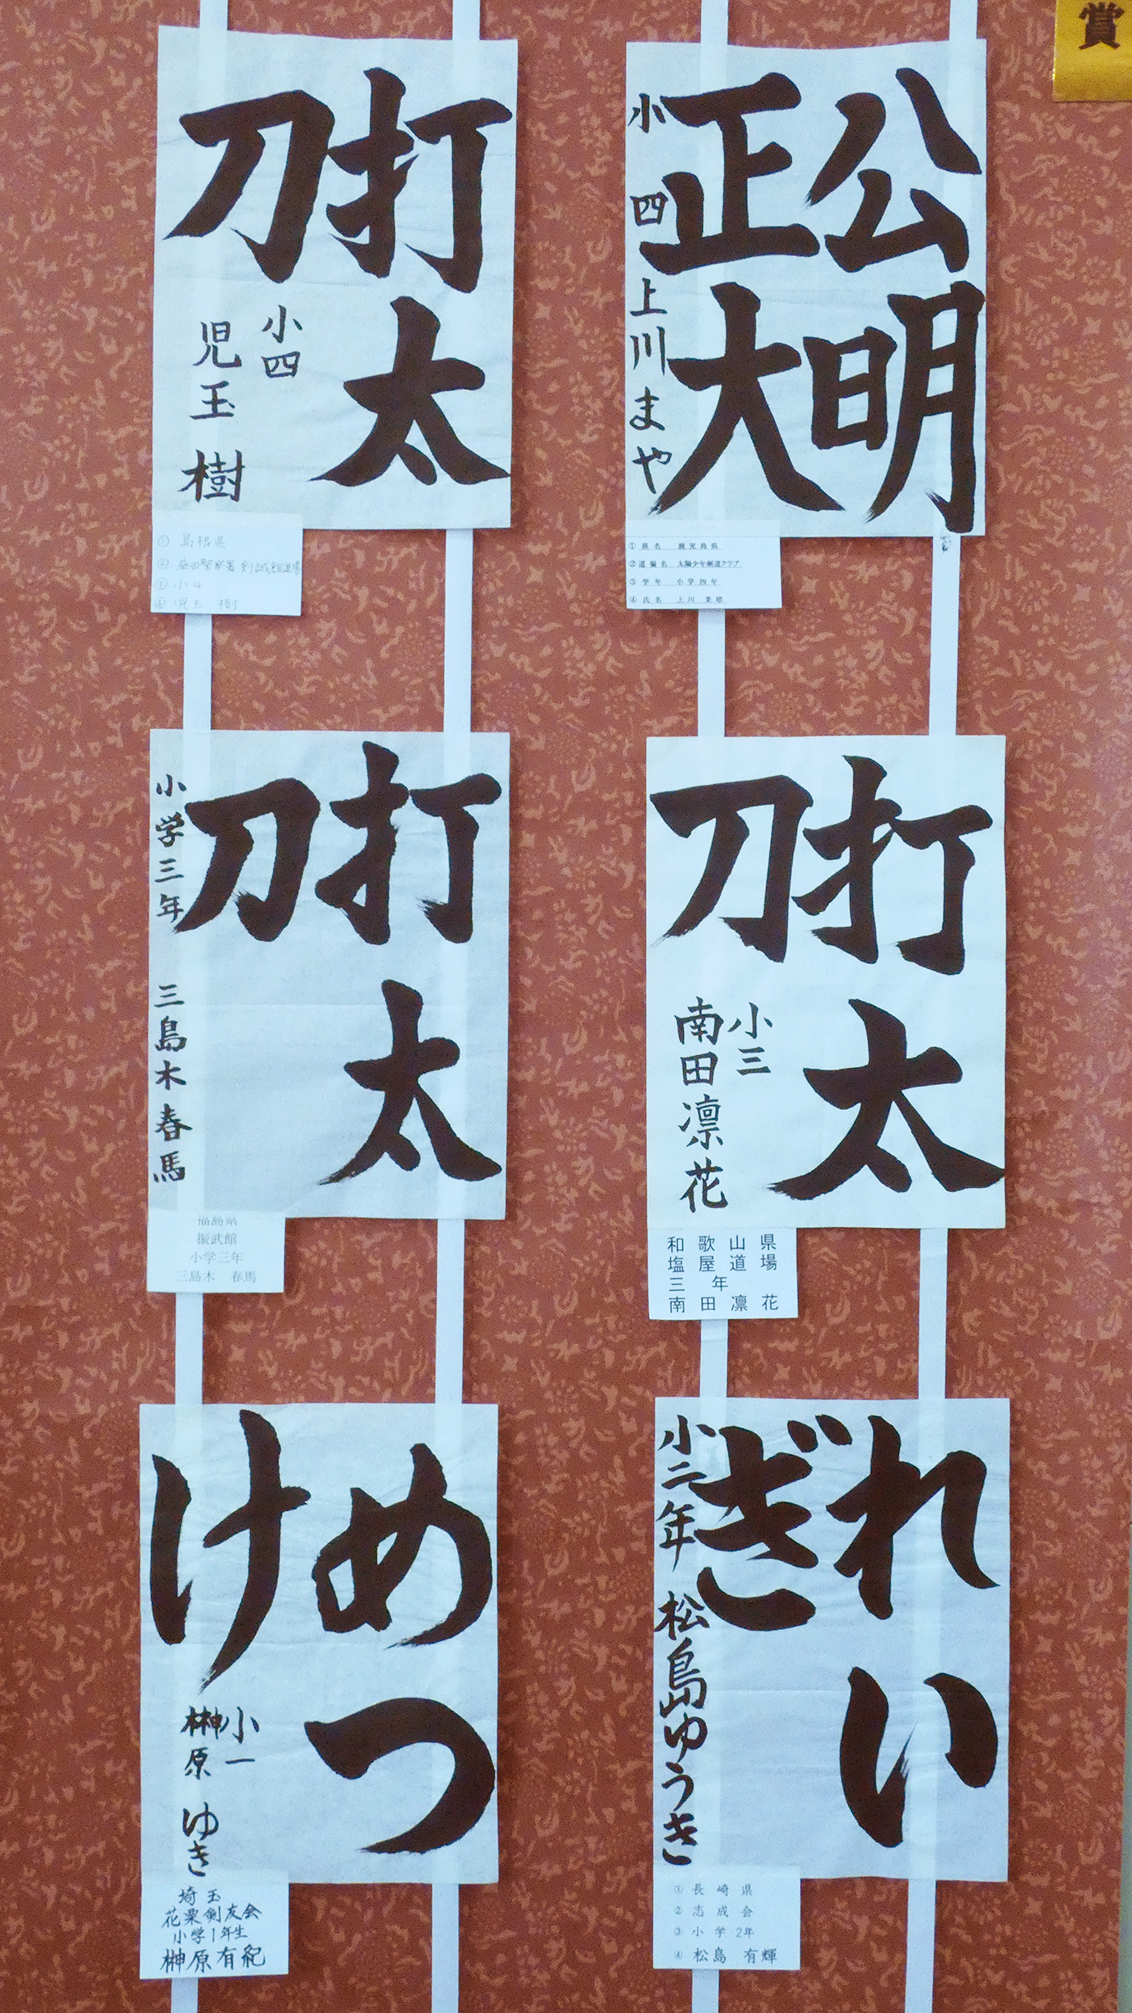 賞
公明
正大
小四 上川まや
①県名 鹿児島県
②道場名 太陽少年剣道クラブ
③学年 小学四年
④氏名 上川
打太
刀
小四
児玉 樹
① 島根県
② 益田警察署
③ 小4
④ 児玉 樹
打太
刀
小三
南田凛花
和歌山県
塩屋道場
三年
南田凛花
打太
刀
小学三年 三島木春馬
福島県
振武館
小学三年
三島木 春馬
れい
ぎ
小二年 松島ゆうき
① 長崎県
② 志成会
③ 小学 2年
④ 松島 有輝
めつ
け
小一
榊原 ゆき
埼玉
花栗剣友会
小学1年生
榊原有紀